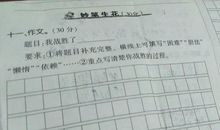 妙笔生花(30分)
十一、作文。(30分)
题目:我战胜了
要求:①将题目补充完整。横线上可填写"困难""胆怯"
"懒惰""依赖"……②重点写清楚你战胜的过程。